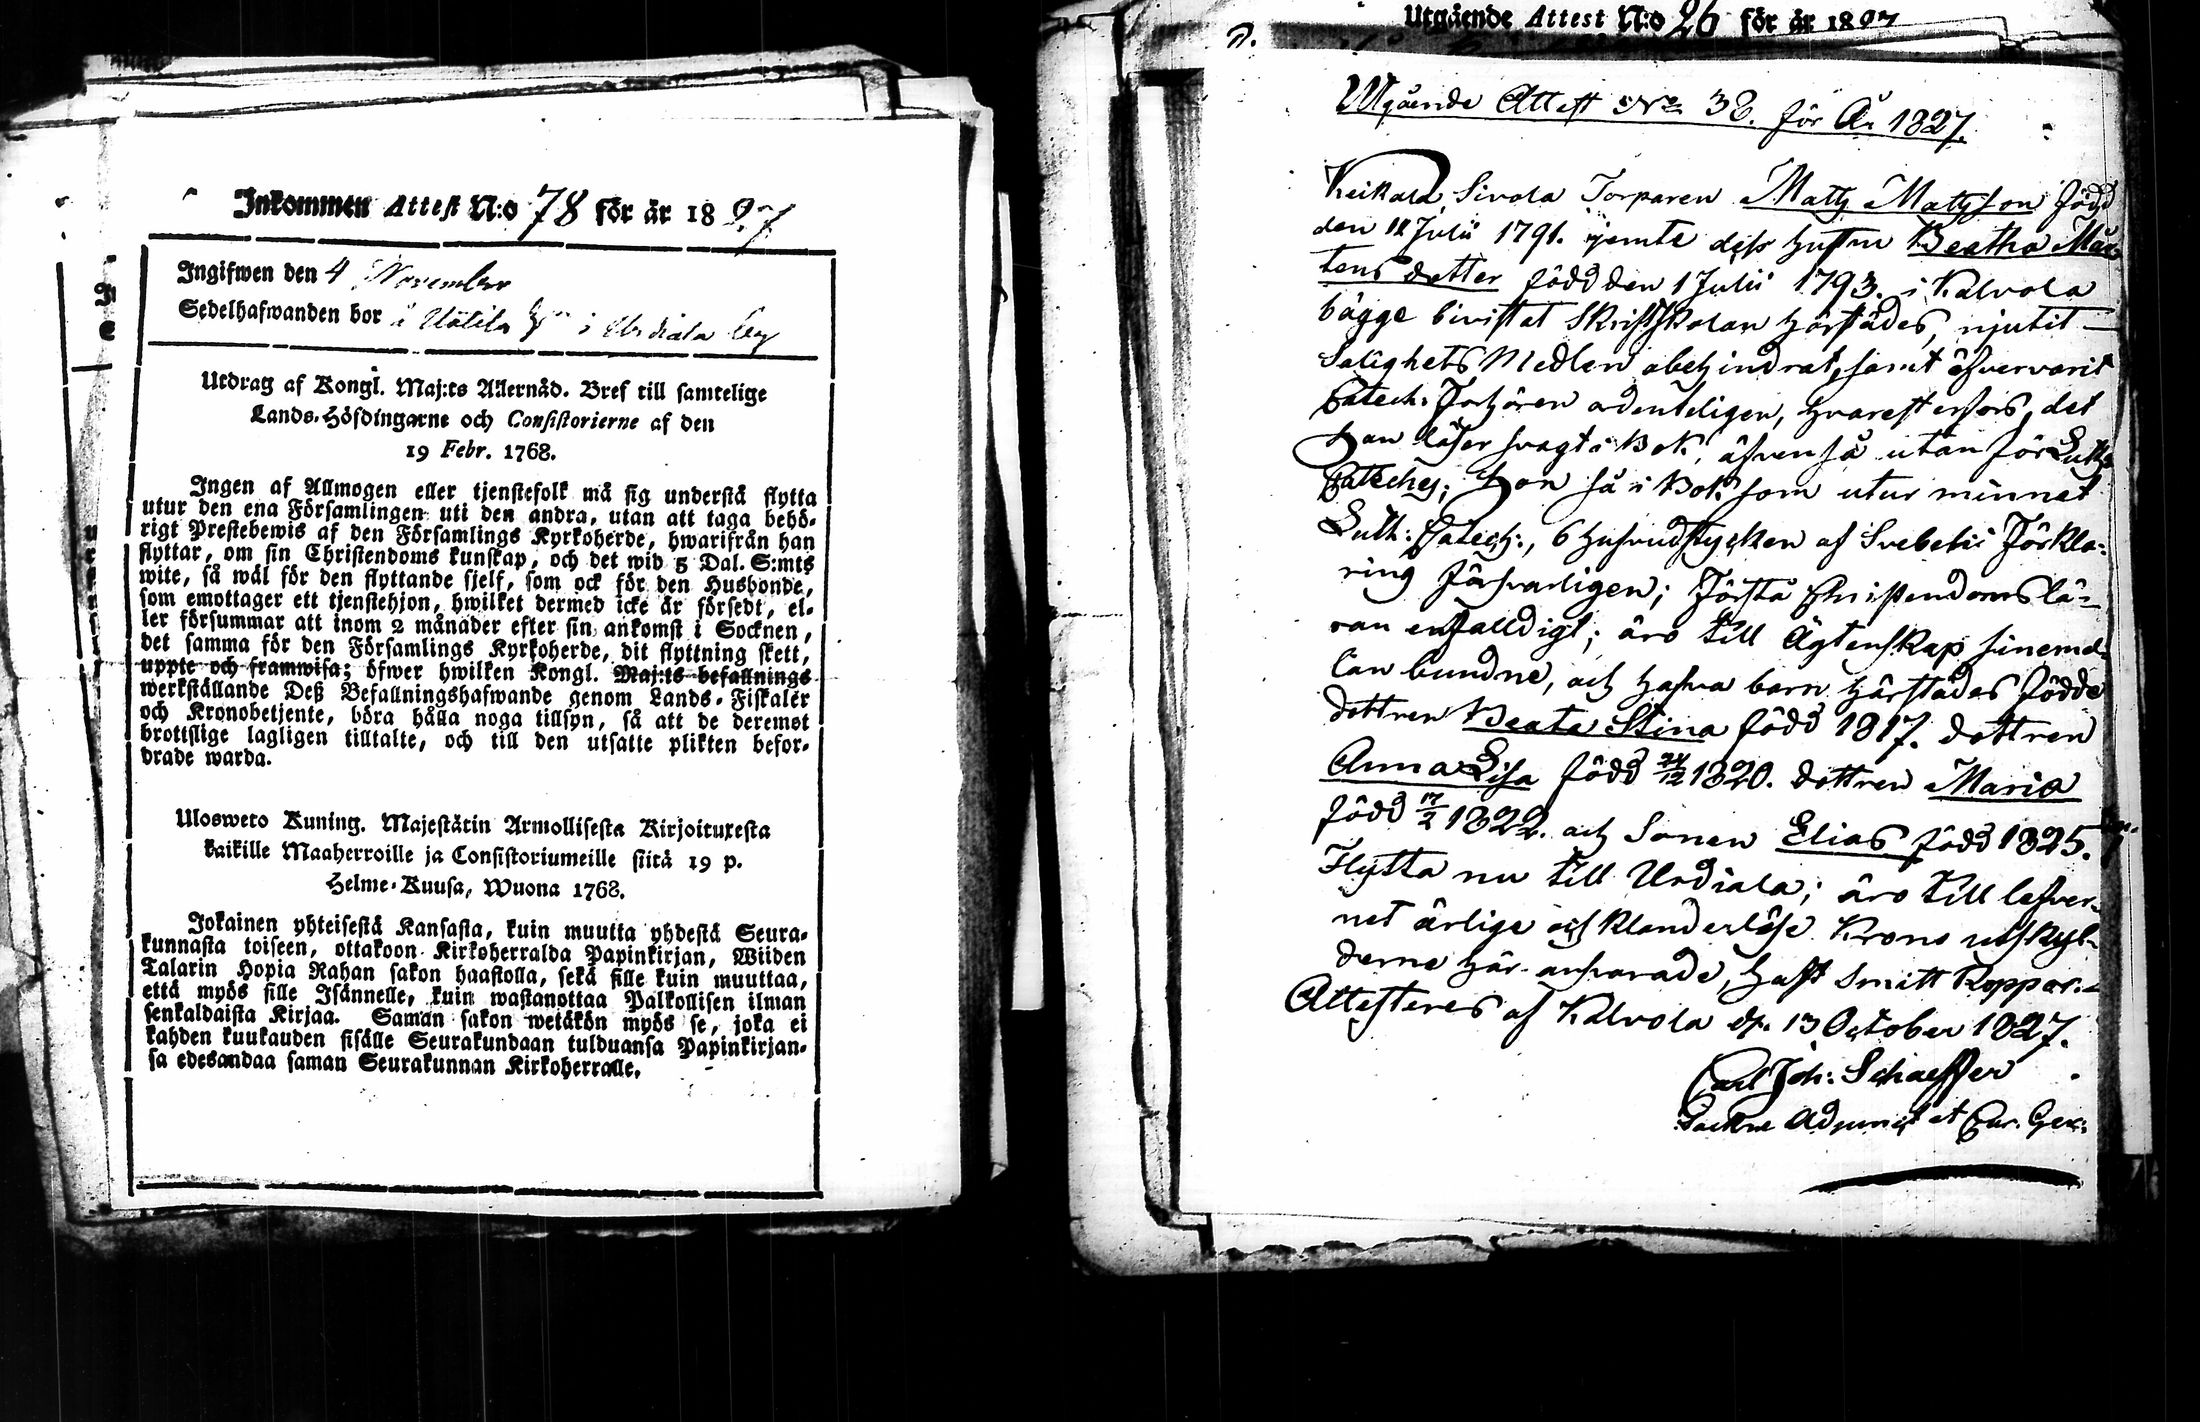 Inkommen Attest N:o 78 för år 1827
Ingifwen den 4 November
Sedelhafwanden bor i Urdiala by
Utdrag af Kongl. Maj:ts Allernåd. Bref till samtelige
Lands-Höfdingarne och Consistorierne af den
19 Febr. 1768.
Ingen af Allmogen eller tjenstefolk må sig understå flytta
utur den ena Församlingen uti den andra, utan att taga behö-
rigt Prestebewis af den Församlings Kyrkoherde, hwarifrån han
flyttar, om sin Christendoms kunskap, och det wid 5 Dal. S:mts
wite, så wäl för den flyttande sjelf, som ock för den Husbonde,
som emottager ett tjenstehjon, hwilket dermed icke är försedt, el-
ler försummar att inom 2 månader efter sin ankomst i Socknen,
det samma för den Församlings Kyrkoherde, dit flyttning skett,
uppte och framwisa; öfwer hwilken Kongl. Maj:ts befallnings
werkställande Deß Befallningshafwande genom Lands-Fiskaler
och Kronobetjente, böra hålla noga tillsyn, så att de deremot
brottslige lagligen tilltalte, och till den utsatte plikten befor-
drade warda.
Ulosweto Kuning. Majestätin Armollisesta Kirjoituxesta
kaikille Maaherroille ja Consistoriumeille siitä 19 p.
Helme-Kuusa, Wuona 1768.
Jokainen yhteisestä Kansasta, kuin muutta yhdestä Seura-
kunnasta toiseen, ottakoon Kirkoherralda Papinkirjan, Wiiden
Talarin Hopia Rahan sakon haastolla, sekä sille kuin muuttaa,
että myös sille Isännelle, kuin wastanottaa Palkollisen ilman
senkaldaista Kirjaa. Saman sakon wetäkön myös se, joka ei
kahden kuukauden sisälle Seurakundaan tulduansa Papinkirjan-
sa edesandaa saman Seurakunnan Kirkoherralle.
Utgående Attest N:o 26 för år 1827
Utgående Attest No 38. för År 1827.
Keikala, Sivola Torparen Matts Mattsson född
den 12 Julii 1791. jemte dess hustru Beatha Mår-
tens dotter född den 1 Julii 1793. i Kalvola
bägge bivistat Skriftskolan härstädes, njutit
Salighets Medlen obehindrat, samt öfvervarit
Catech: Förhören ordenteligen, hvarest erfors, det
Han läser svagt i Bok, äfven så utan för Luth:
Cateches; Hon så i Bok som utur minnet
Luth: Catech:, 6 hufvudstycken af Svebelii Förkla-
ring försvarligen; Första Christendoms lä-
ran enfalldigt; äro till Ägtenskap sinemel-
lan bundne, och hafva barn härstädes födde
dottren Beata Stina född 1817. dottren
Anna Lisa född 24/12 1820. dottren Maria
född 17/2 1822. och Sonen Elias född 1825.
Flytta nu till Urdiala; äro till lefver-
net ärlige och klanderlöse Krono utskyl-
derne här ansvarade, haft Smitt Koppor.
Attesteres af Kalvola d. 13 October 1827.
Carl Joh: Schaeffer
Sockne Adjunct et Cur. Ger: